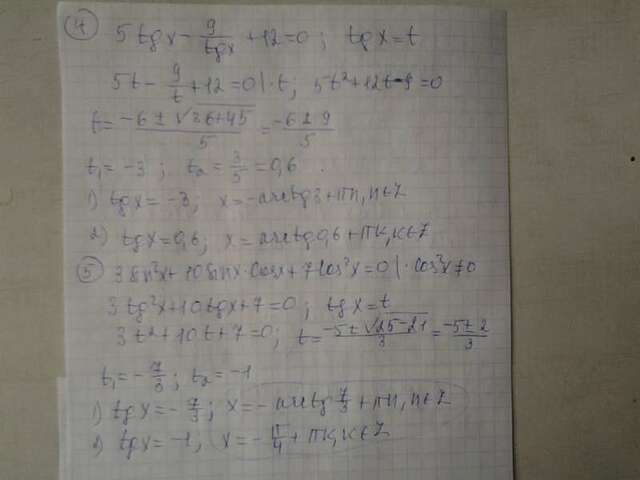 ④ 5tgx - 9/tgx + 12 = 0; tgx = t
5t - 9/t + 12 = 0 | · t; 5t² + 12t - 9 = 0
t = (-6 ± √(36+45))/5 = (-6 ± 9)/5
t₁ = -3; t₂ = 3/5 = 0,6.
1) tgx = -3; x = -arctg3 + πn, n∈Z
2) tgx = 0,6; x = arctg0,6 + πk, k∈Z
⑤ 3sin²x + 10sinx · cosx + 7cos²x = 0 | · cos²x ≠ 0
3tg²x + 10tgx + 7 = 0; tgx = t
3t² + 10t + 7 = 0; t = (-5 ± √(25-21))/3 = (-5 ± 2)/3
t₁ = -7/3; t₂ = -1
1) tgx = -7/3; x = -arctg 7/3 + πn, n∈Z
2) tgx = -1; x = -π/4 + πk, k∈Z